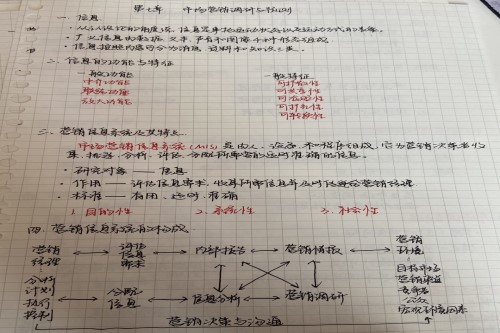 第七章 市场营销调研与预测
一、信息
· 从认识论的角度说，信息是事物运动的状态以及运动方式的表象。
· 广义信息由数据、文本、声音和图像4种形态组成。
· 信息按照内容可分为消息、资料和知识三类。
二、信息的功能与特征
一般功能 一般特征
中介功能 可扩散性
联结功能 可共享性
放大功能 可存贮性
可扩充性
可转换性
三、营销信息系统及其特点
市场营销信息系统(MIS)是由人、设备和程序组成，它为营销决策者收
集、挑选、分析、评估、分配所需要的适时准确的信息。
· 研究对象 —— 信息
· 作用 —— 评估信息需求、收集所需信息并及时传递给营销经理
· 标准 —— 有用、适时、准确
1. 目的性 2. 系统性 3. 社会性
四、营销信息系统的构成
营销经理 评估信息需求 内部报告 营销情报 营销环境
分析 计划 执行 控制 分配信息 信息分析 营销调研 目标市场 营销渠道 竞争者 公众 宏观环境因素
营销决策与沟通